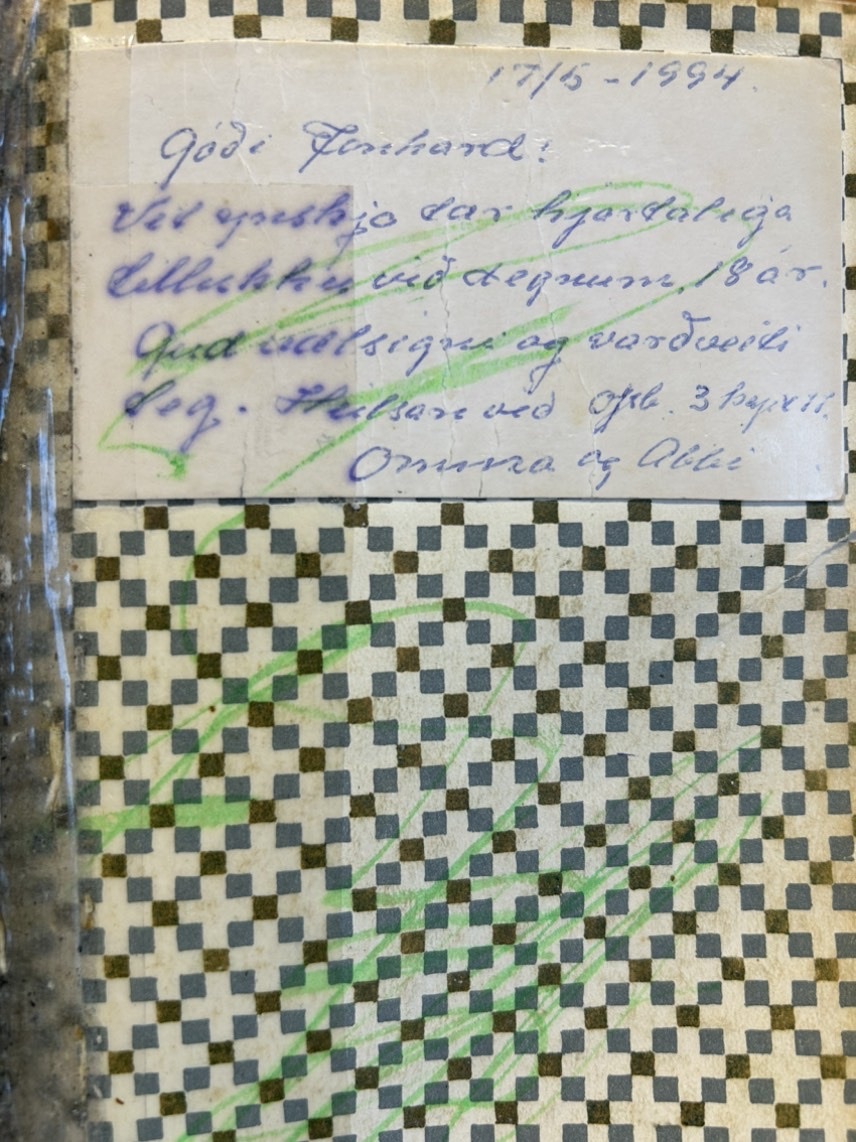 17/5 - 1994.
Góði Jonhard:
Vit ynskja tær hjartaliga
tillukku við tegnum 18 ár.
Gud vælsigni og varðveiti
teg. Heilsan við Ojb. 3 kap v 11.
Omma og Abbi